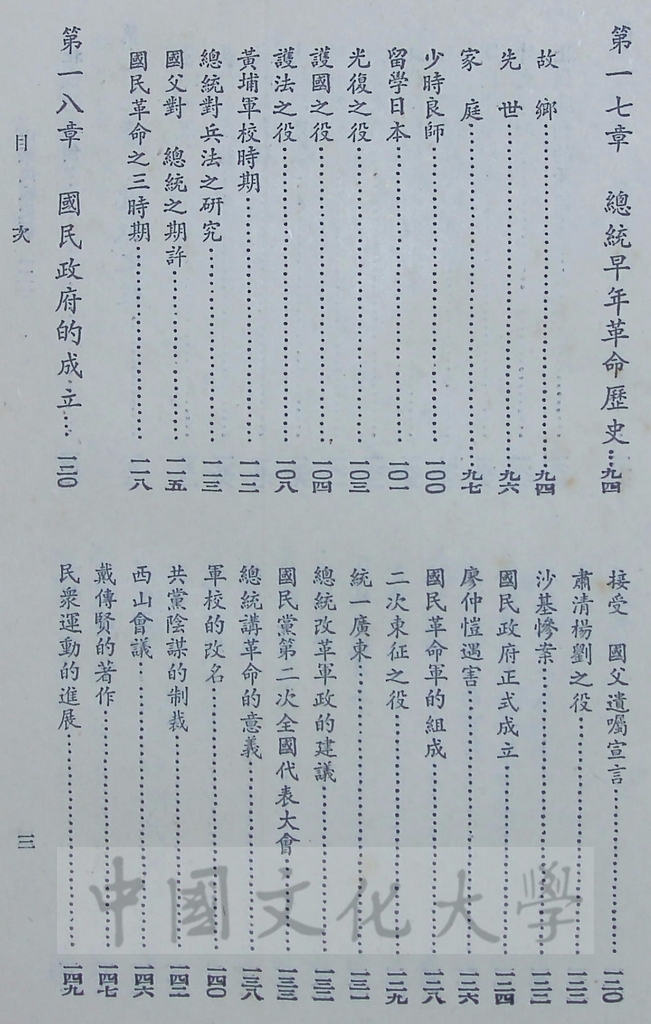 第一七章 總統早年革命歷史…九四
故鄉……九四
先世……九六
家庭……九七
少時良師……一〇〇
留學日本……一〇一
光復之役……一〇三
護國之役……一〇四
護法之役……一〇八
黃埔軍校時期……一一二
總統對兵法之研究……一一三
國父對 總統之期許……一一五
國民革命之三時期……一一八
第一八章 國民政府的成立…一二〇
接受 國父遺囑宣言……一二〇
肅清楊劉之役……一二二
沙基慘案……
國民政府正式成立……一二四
廖仲愷遇害……一二六
國民革命軍的組成……一二八
二次東征之役……一二九
統一廣東……一三一
總統改革軍政的建議……一三二
國民黨第二次全國代表大會……一三三
總統講革命的意義……一三八
軍校的改名……一四〇
共黨陰謀的制裁……一四二
西山會議……一四六
戴傳賢的著作……一四七
民眾運動的進展……一四九
目次
三
中國文化大學